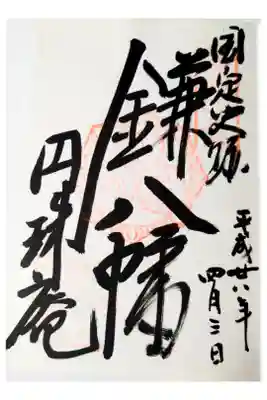 国定史跡
鎌八幡
円珠庵
平成廿八年
四月三日